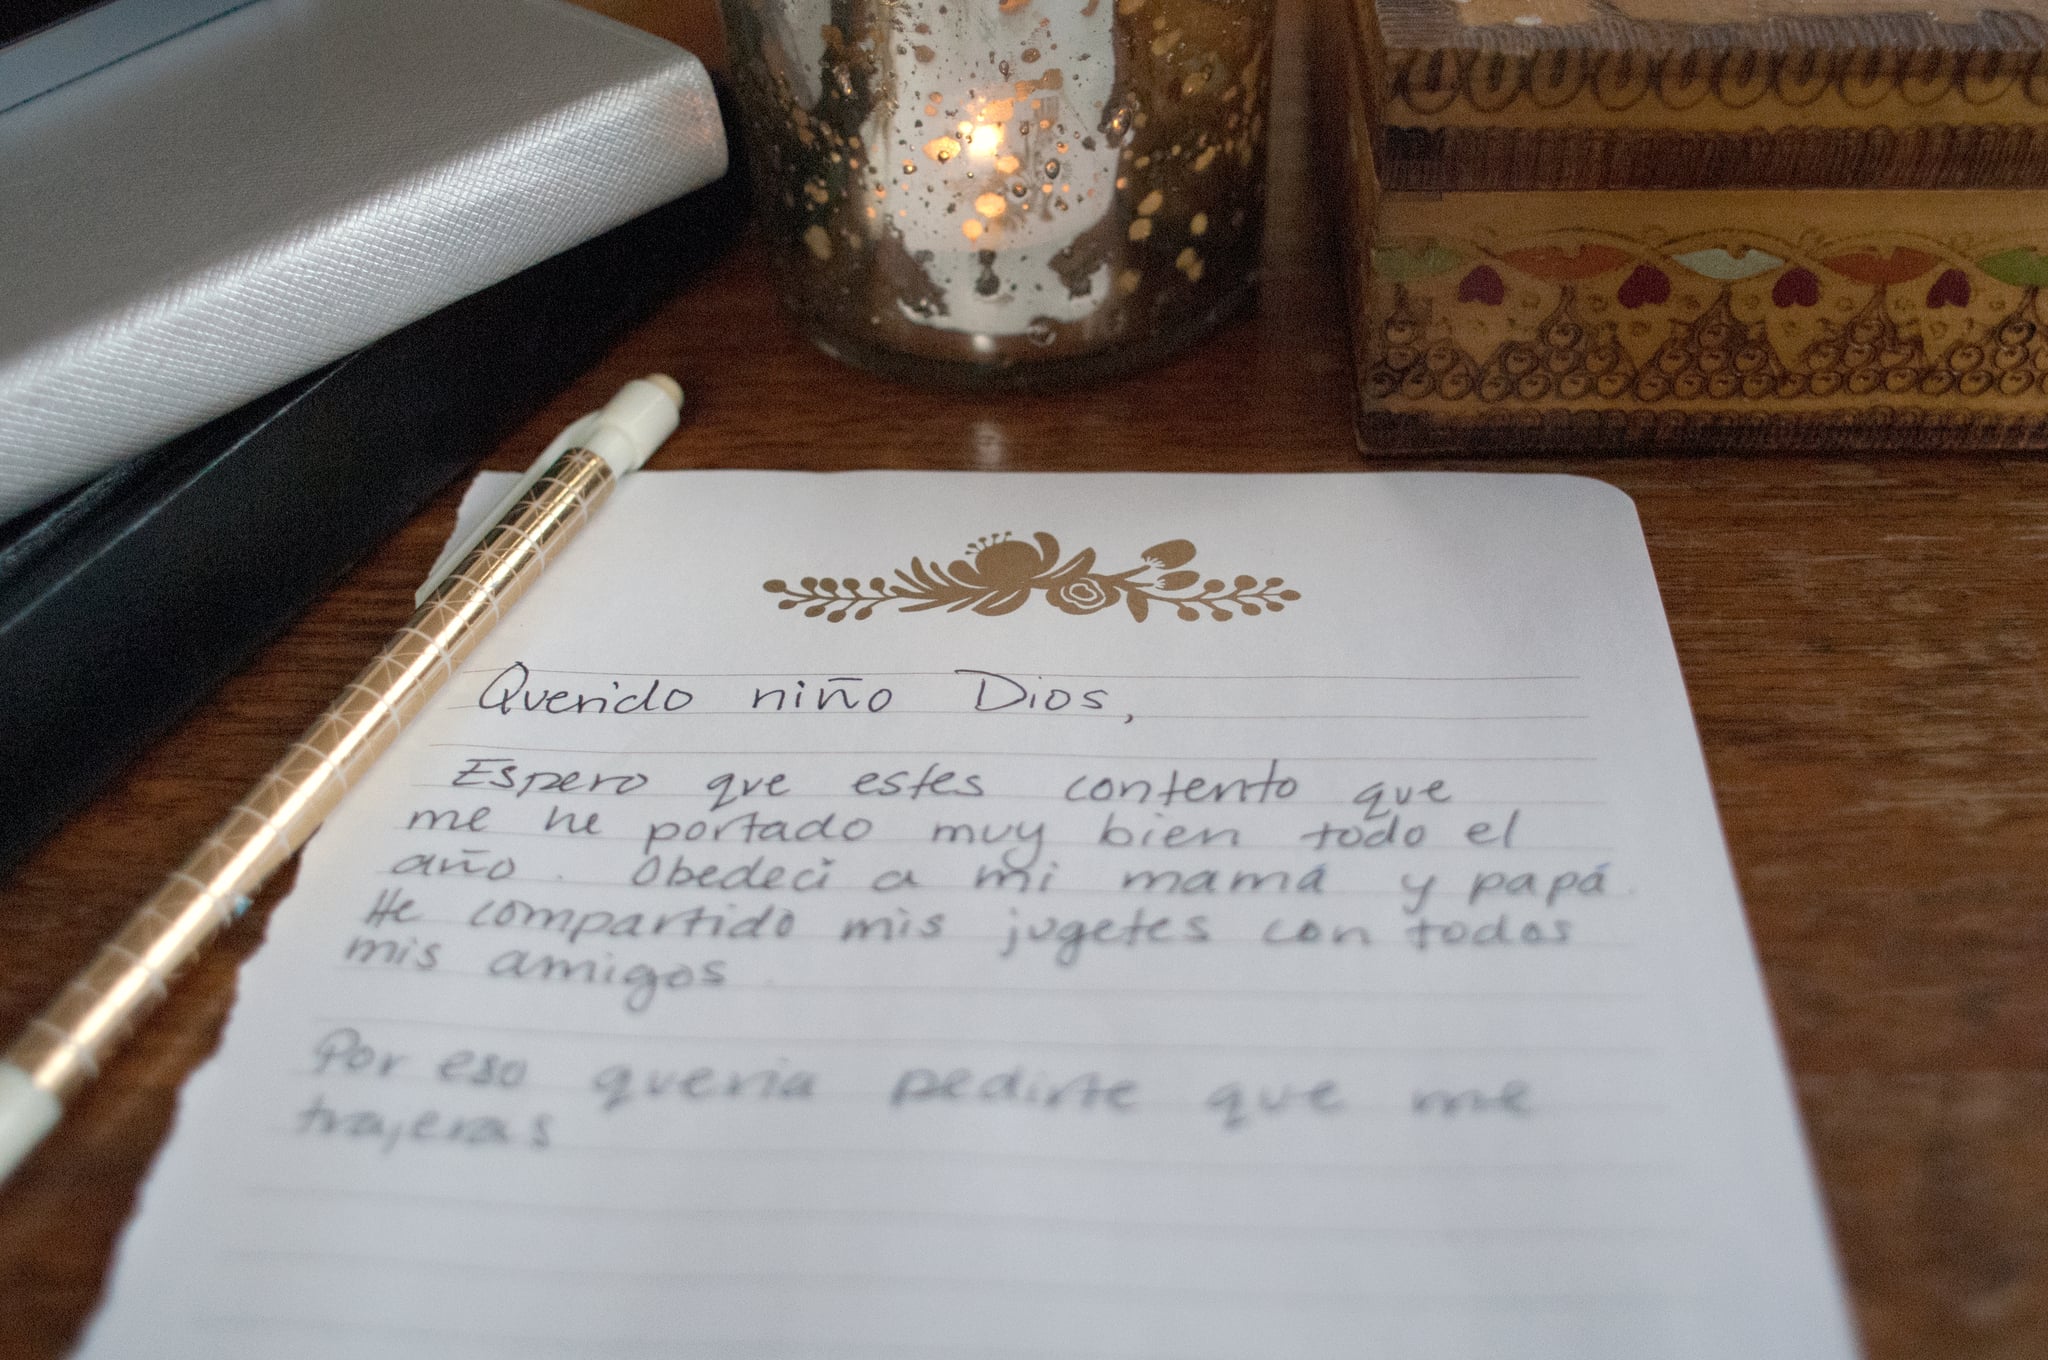 Querido niño Dios,
Espero que estes contento que
me he portado muy bien todo el
año. Obedeci a mi mamá y papá.
He compartido mis jugetes con todos
mis amigos.
Por eso queria pedirte que me
trajeras